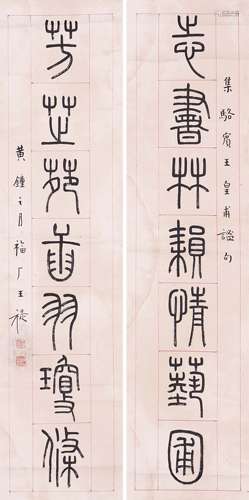 集駱賓王皇甫謐句
志書林情藝圃
芳芷苑羽瓊條
黃鍾之月福厂王禔